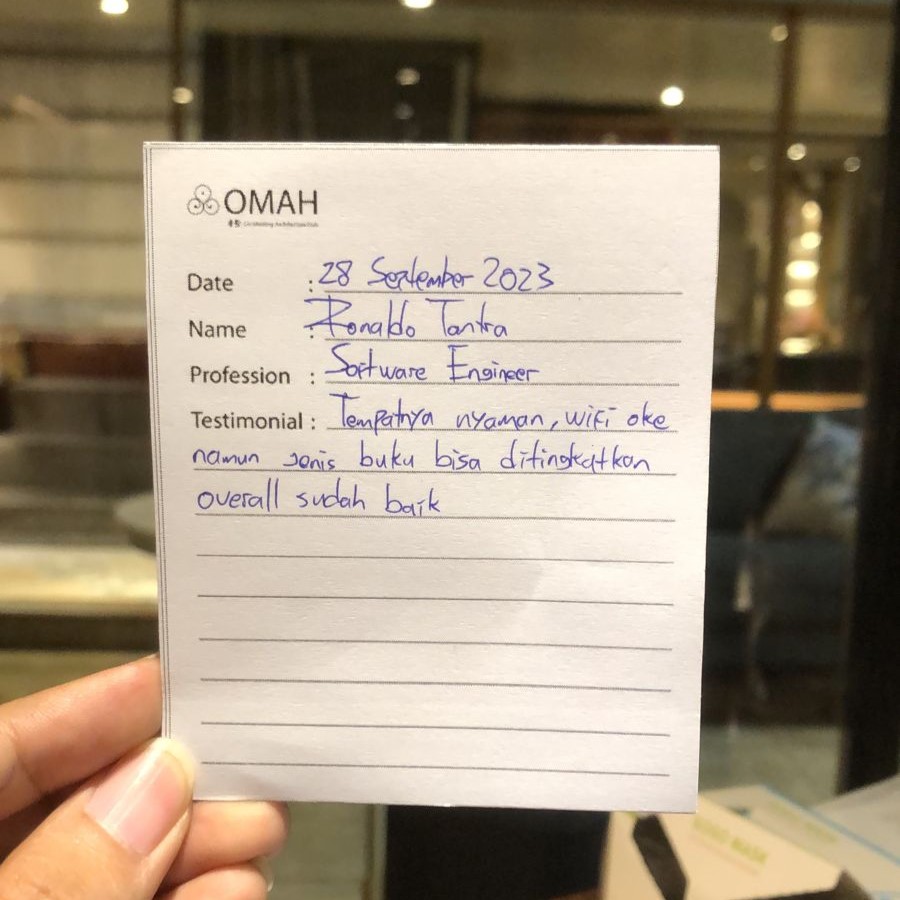 OMAH
Date : 28 September 2023
Name : Ronaldo Tantra
Profession : Software Engineer
Testimonial : Tempatnya nyaman, wifi oke
namun jenis buku bisa ditingkatkan
overall sudah baik